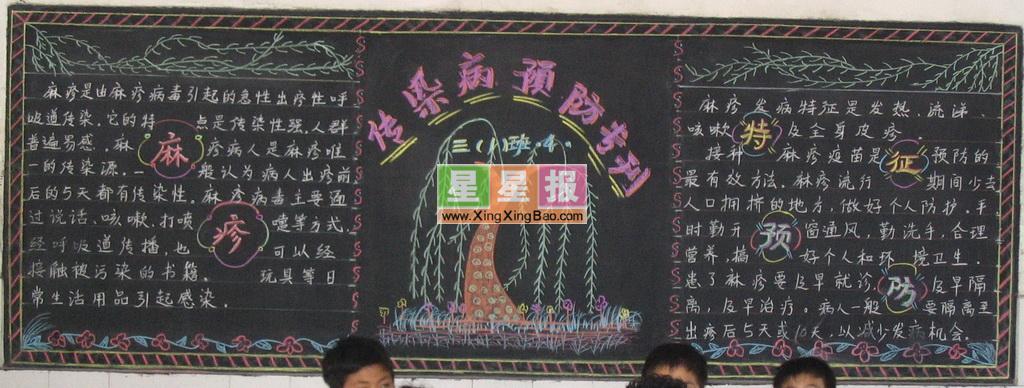 麻疹是由麻疹病毒引起的急性出疹性呼
吸道传染、它的特 点是传染性强、人群
普遍易感、麻 疹病人是麻疹唯
一的传染源、一 般认为病人出疹前
后的5天都有传染性。麻疹病毒主要通
过说话、咳嗽、打喷 嚏等方式,
经呼吸道传播,也 可以经
接触被污染的书籍、 玩具等日
常生活用品引起感染。
麻
疹
传染病预防专刊
三(1)班·4·
星星报
www.XingXingBao.com
麻疹发病特征是发热、流涕、
咳嗽 及全身皮疹。
接种 麻疹疫苗是 预防的
最有效方法。麻疹流行 期间少去
人口拥挤的地方,做好个人防护。手
时勤开 窗通风,勤洗手,合理
营养,搞 好个人和环 境卫生。
患了麻疹要及早就诊, 及早隔
离,及早治疗。病人一般 要隔离至
出疹后5天或10天,以减少发病机会。
特
征
预
防